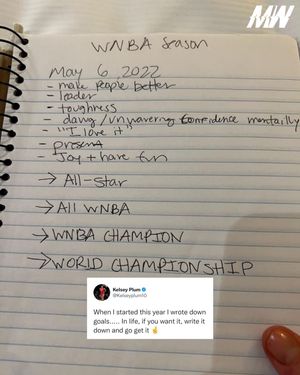 MW
WNBA Season
May 6, 2022
- make people better
- leader
- toughness
- dawg/unwavering confidence mentally
- "I love it"
- present
- Joy + have fun
→ All-Star
→ All WNBA
→ WNBA CHAMPION
→ WORLD CHAMPIONSHIP
Kelsey Plum
@Kelseyplum10
When I started this year I wrote down
goals..... In life, if you want it, write it
down and go get it ✌️